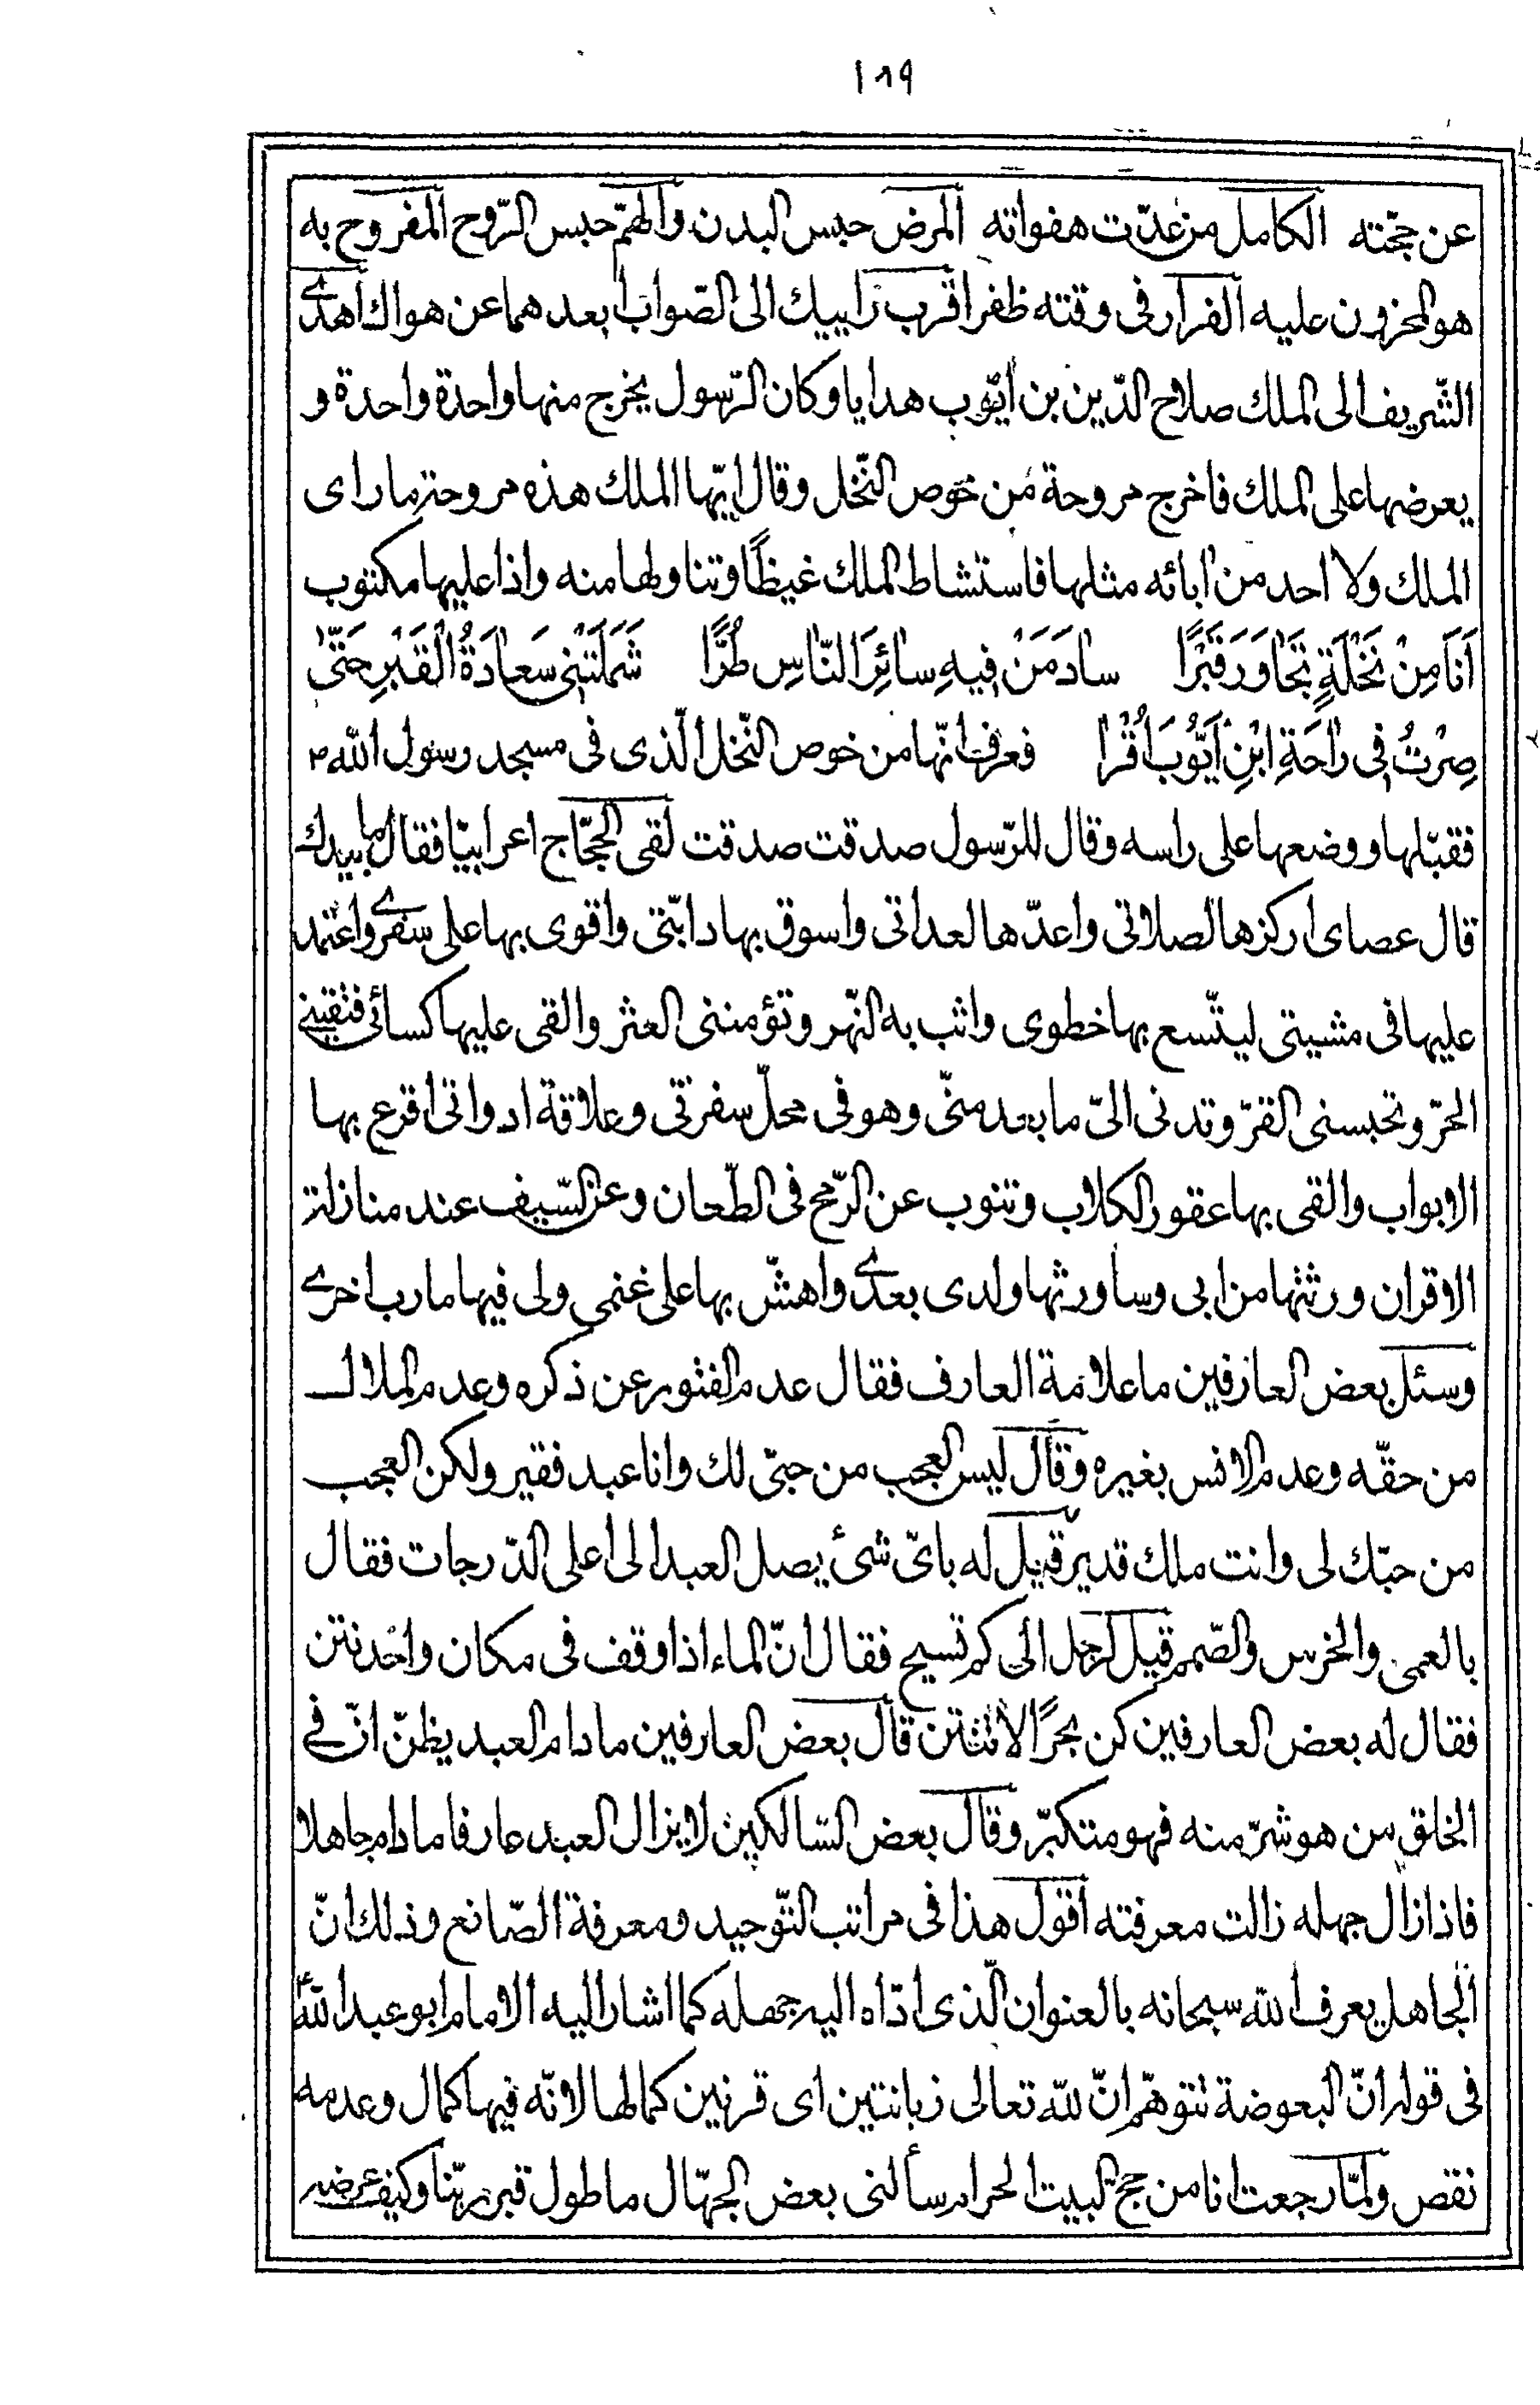 ١٨٩
عن حجّته الكامل من عدّت هفواته المرض حبس البدن والهمّ حبس الرّوح المفروح به
هو المحزون عليه الفرار فى وقته ظفر اقرب رابيك الى الصّواب ابعدهما عن هواك اهدى
الشّريف الى الملك صلاح الدّين بن ايّوب هدايا وكان الرّسول يخرج منها واحدة واحدة و
يعرضها على الملك فاخرج مروحة من خوص النّخل وقال ايّها الملك هذه مروحة ما راى
الملك ولا احد من ابائه مثلها فاستشاط الملك غيظًا وتناولها منه واذا عليها مكتوب
اَنَا مِنْ نَخْلَةٍ تَجَاوَرَ قَبْرًا سادَ مَنْ فِيهِ سائِرَ النّاسِ طُرًّا شَمَلَتْنِى سَعادَةُ الْقَبْرِ حَتّى
صِرْتُ فِى راحَةِ ابْنِ اَيُّوبَ اُقْرا فعرف انّها من خوص النّخل الّذى فى مسجد رسول اللّه ص
فقبّلها ووضعها على راسه وقال للرّسول صدقت صدقت لقى الحجّاج اعرابيّا فقال ما بيدك
قال عصاى اركزها لصلاتى واعدّها لعداتى واسوق بها دابّتى واقوى بها على سفرى واعتمد
عليها فى مشيتى ليتّسع بها خطوى واثب به النّهر وتؤمننى العثر والقى عليها كسائى فتقينى
الحرّ وتحبسنى القرّ وتدنى الىّ ما بعد منّى وهو فى محلّ سفرتى وعلاقة ادواتى اقرع بها
الابواب والقى بها عقور الكلاب وتنوب عن الرّمح فى الطّعان وعن السّيف عند منازلة
الاقران ورثتها من ابى وساورثها ولدى بعدى واهشّ بها على غنمى ولى فيها مارب اخرى
وسئل بعض العارفين ما علامة العارف فقال عدم الفتور عن ذكره وعدم الملال
من حقّه وعدم الانس بغيره وقال ليس العجب من حبّى لك وانا عبد فقير ولكن العجب
من حبّك لى وانت ملك قدير قيل له باىّ شئ يصل العبد الى اعلى الدّرجات فقال
بالعمى والخرس والصّمم قيل لرجل الى كم تسيح فقال انّ الماء اذا وقف فى مكان واحد نتن
فقال له بعض العارفين كن بحرًا لا تنتن قال بعض العارفين ما دام العبد يظنّ انّ فى
الخلق من هو شرّ منه فهو متكبّر وقال بعض السّالكين لا يزال العبد عارفا ما دام جاهلا
فاذا زال جهله زالت معرفته اقول هذا فى مراتب التّوحيد ومعرفة الصّانع وذلك انّ
الجاهل يعرف اللّه سبحانه بالعنوان الّذى ادّاه اليه جهله كما اشار اليه الامام ابو عبد اللّه ع
فى قوله انّ البعوضة تتوهّم انّ للّه تعالى زبانتين اى قرنين كما لها لانّه فيها كمال وعدمه
نقص ولمّا رجعت انا من حجّ البيت الحرام سألنى بعض الجهّال ما طول قبر ربّنا وكيف عرضه